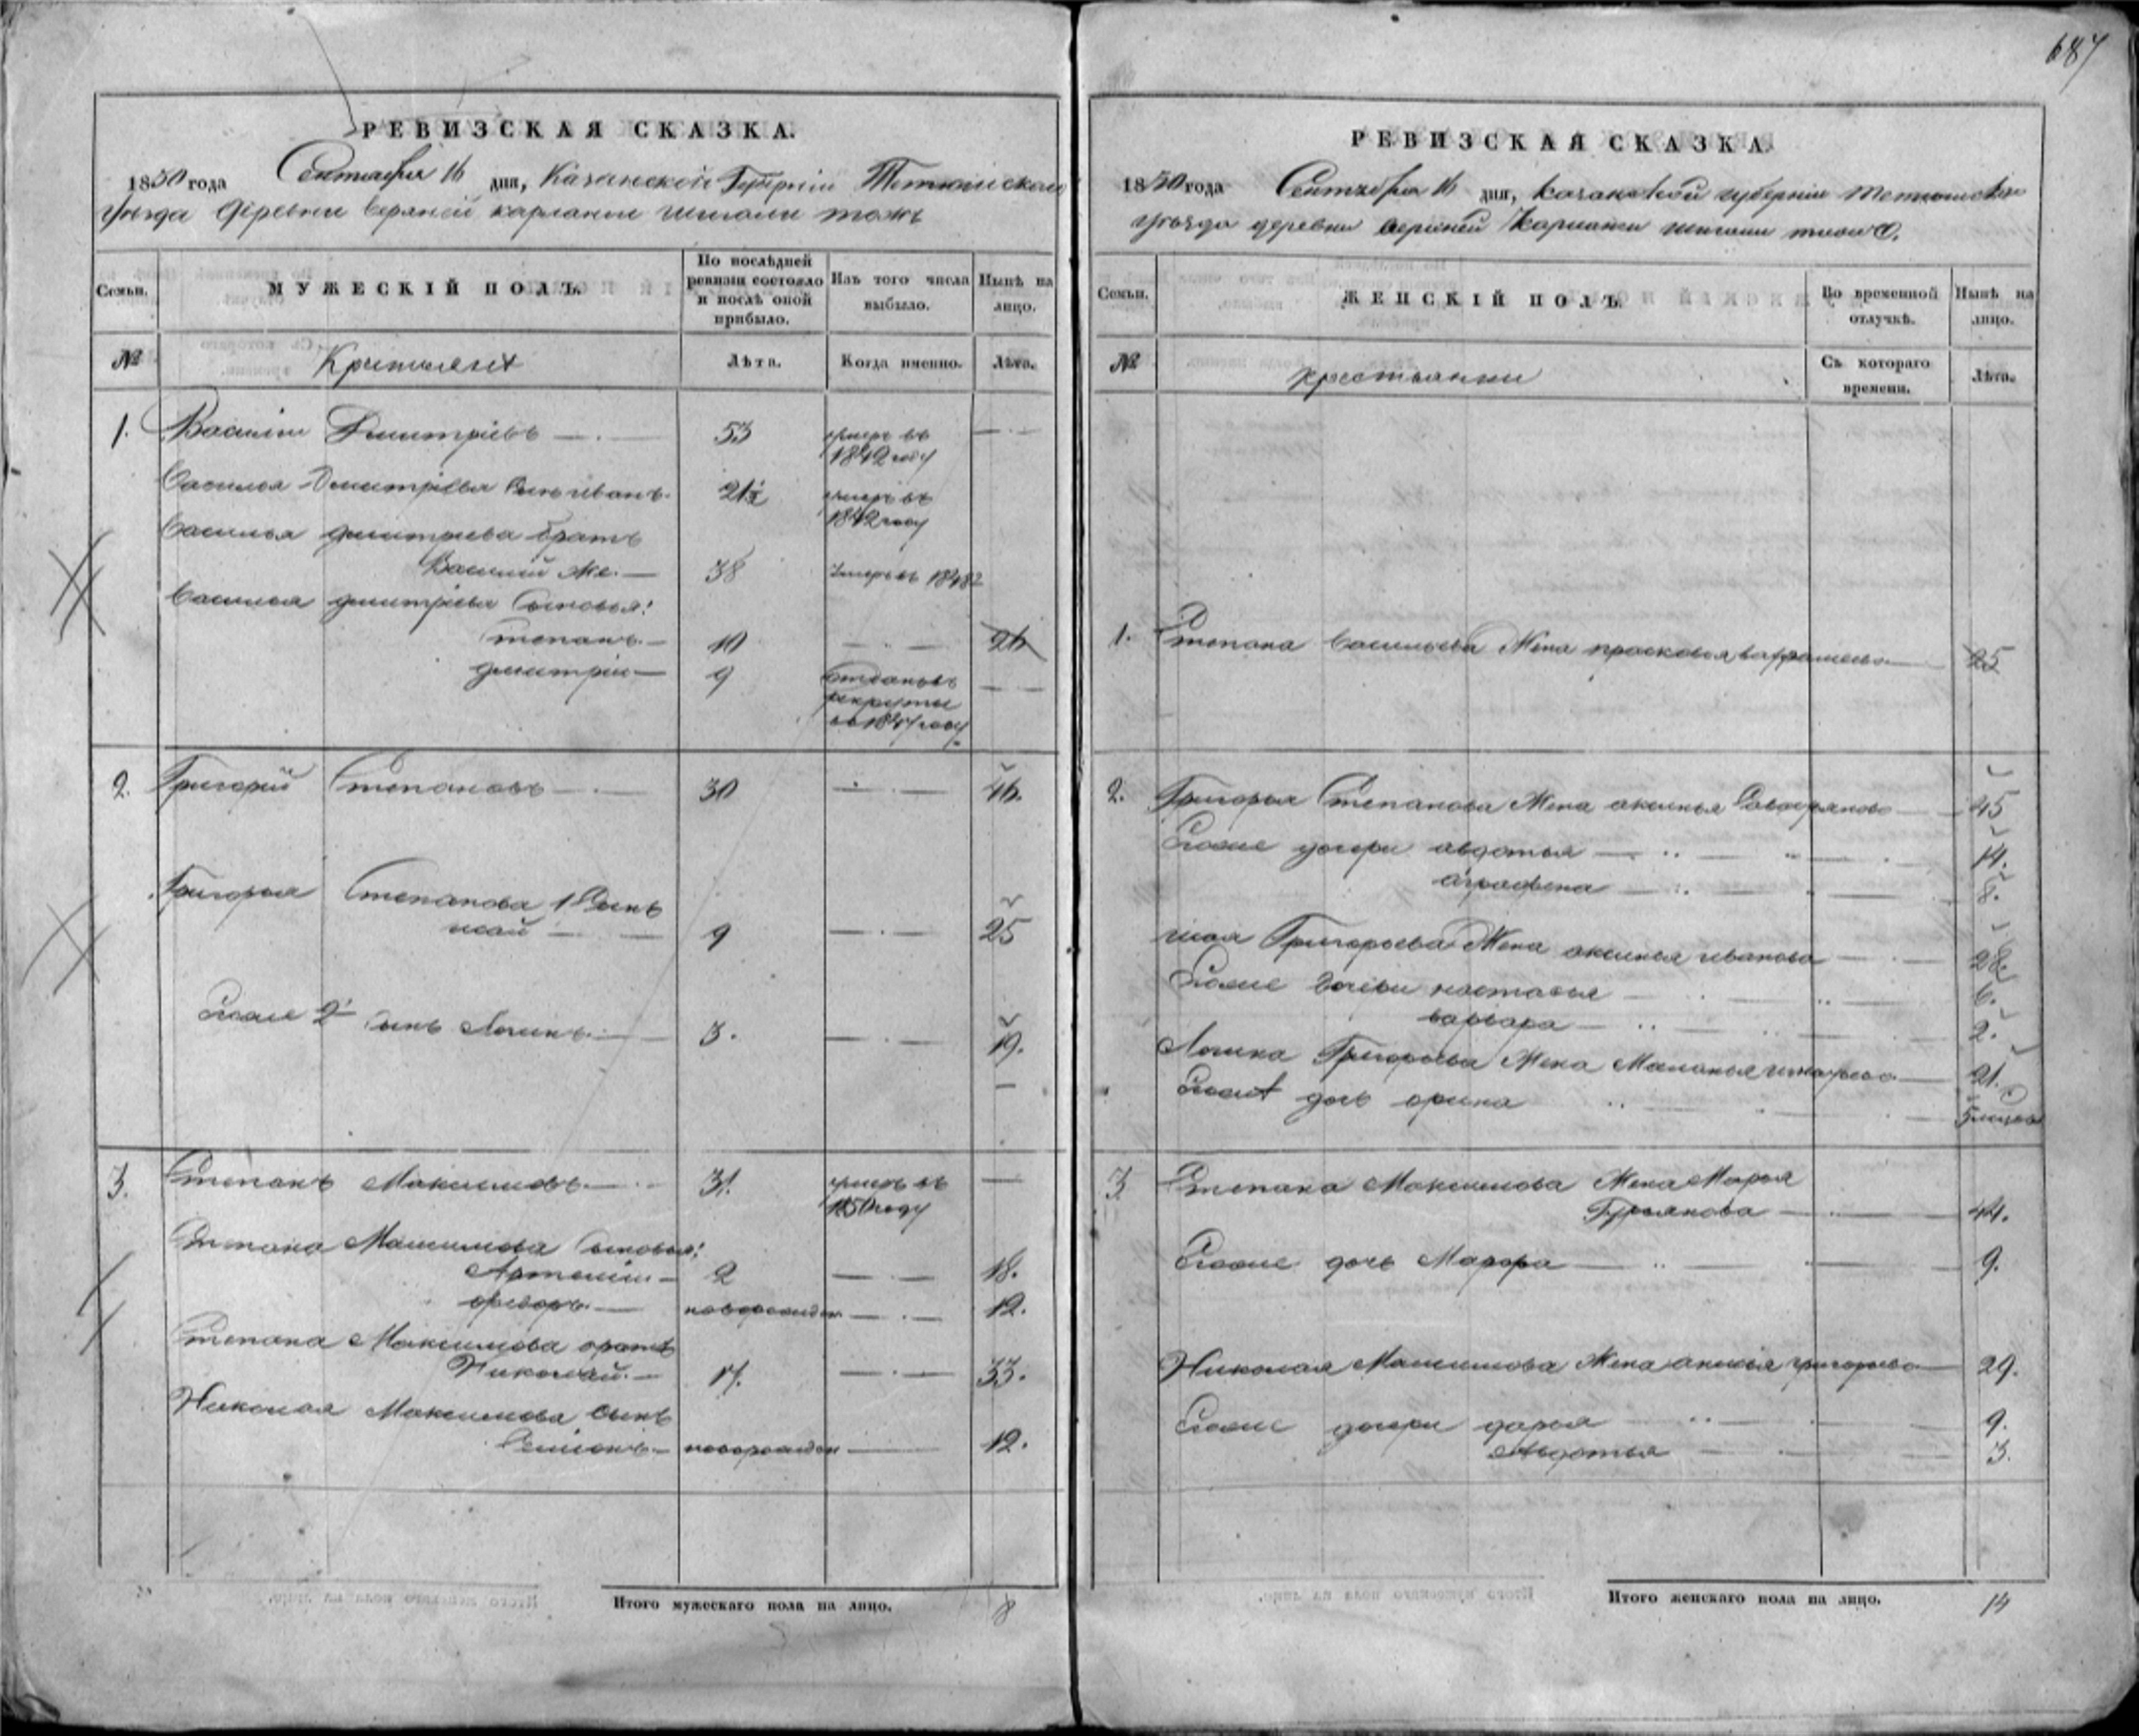 687
РЕВИЗСКАЯ СКАЗКА.
1850 года Сентября 16 дня, Казанской Губерніи Тетюшскаго
уѣзда деревни верхней карланги шигали тожъ
Семьи. МУЖЕСКІЙ ПОЛЪ. По послѣдней ревизіи состояло и послѣ оной прибыло. Изъ того числа выбыло. Нынѣ на лицо.
№ Лѣта. Когда именно. Лѣта.
1. Василій Дмитріевъ 53 умеръ въ 1842 году
Василья Дмитріева сынъ иванъ 21½ умеръ въ 1842 году
Василья дмитріева братъ
Василій же 38 умеръ въ 1848
Василья дмитріева сыновья:
Степанъ 10 26
дмитрій 9 отданъ въ рекруты въ 1847 году
2. Григорій Степановъ 30 46.
Григорья Степанова 1 сынъ
исай 9 25
Егоже 2й сынъ Логинъ 3. 19.
3. Степанъ Максимовъ 31. умеръ въ 1850 году
Степана Максимова сыновья:
Артемій 2 18.
новорожден 12.
Степана Максимова братъ
Николай 17. 33.
Николая Максимова сынъ
Семіонъ новорожден 12.
Итого мужескаго пола на лицо. 8
РЕВИЗСКАЯ СКАЗКА.
1850 года Сентября 16 дня, казанской губерніи тетюшскаго
уѣзда деревни верхней карланги шигали тожъ.
Семьи. ЖЕНСКІЙ ПОЛЪ. Во временной отлучкѣ. Нынѣ на лицо.
№ крестьянки Съ котораго времени. Лѣта.
1. Степана Васильева Жена прасковья 25
2. Григорья Степанова Жена аксинья 45
Егоже дочери авдотья 14.
аграфена 8.
исая Григорьева Жена аксинья иванова 28.
Егоже дочери настасья 6.
варвара 2.
Логина Григорьева Жена Маланья 21.
Егоже дочь орина 5 месяцов
3. Степана Максимова Жена Марья
44.
Егоже дочь Марфа 9.
Николая Максимова Жена григорьева 29.
Егоже дочери дарья 9.
Авдотья 3.
Итого женскаго пола на лицо. 14